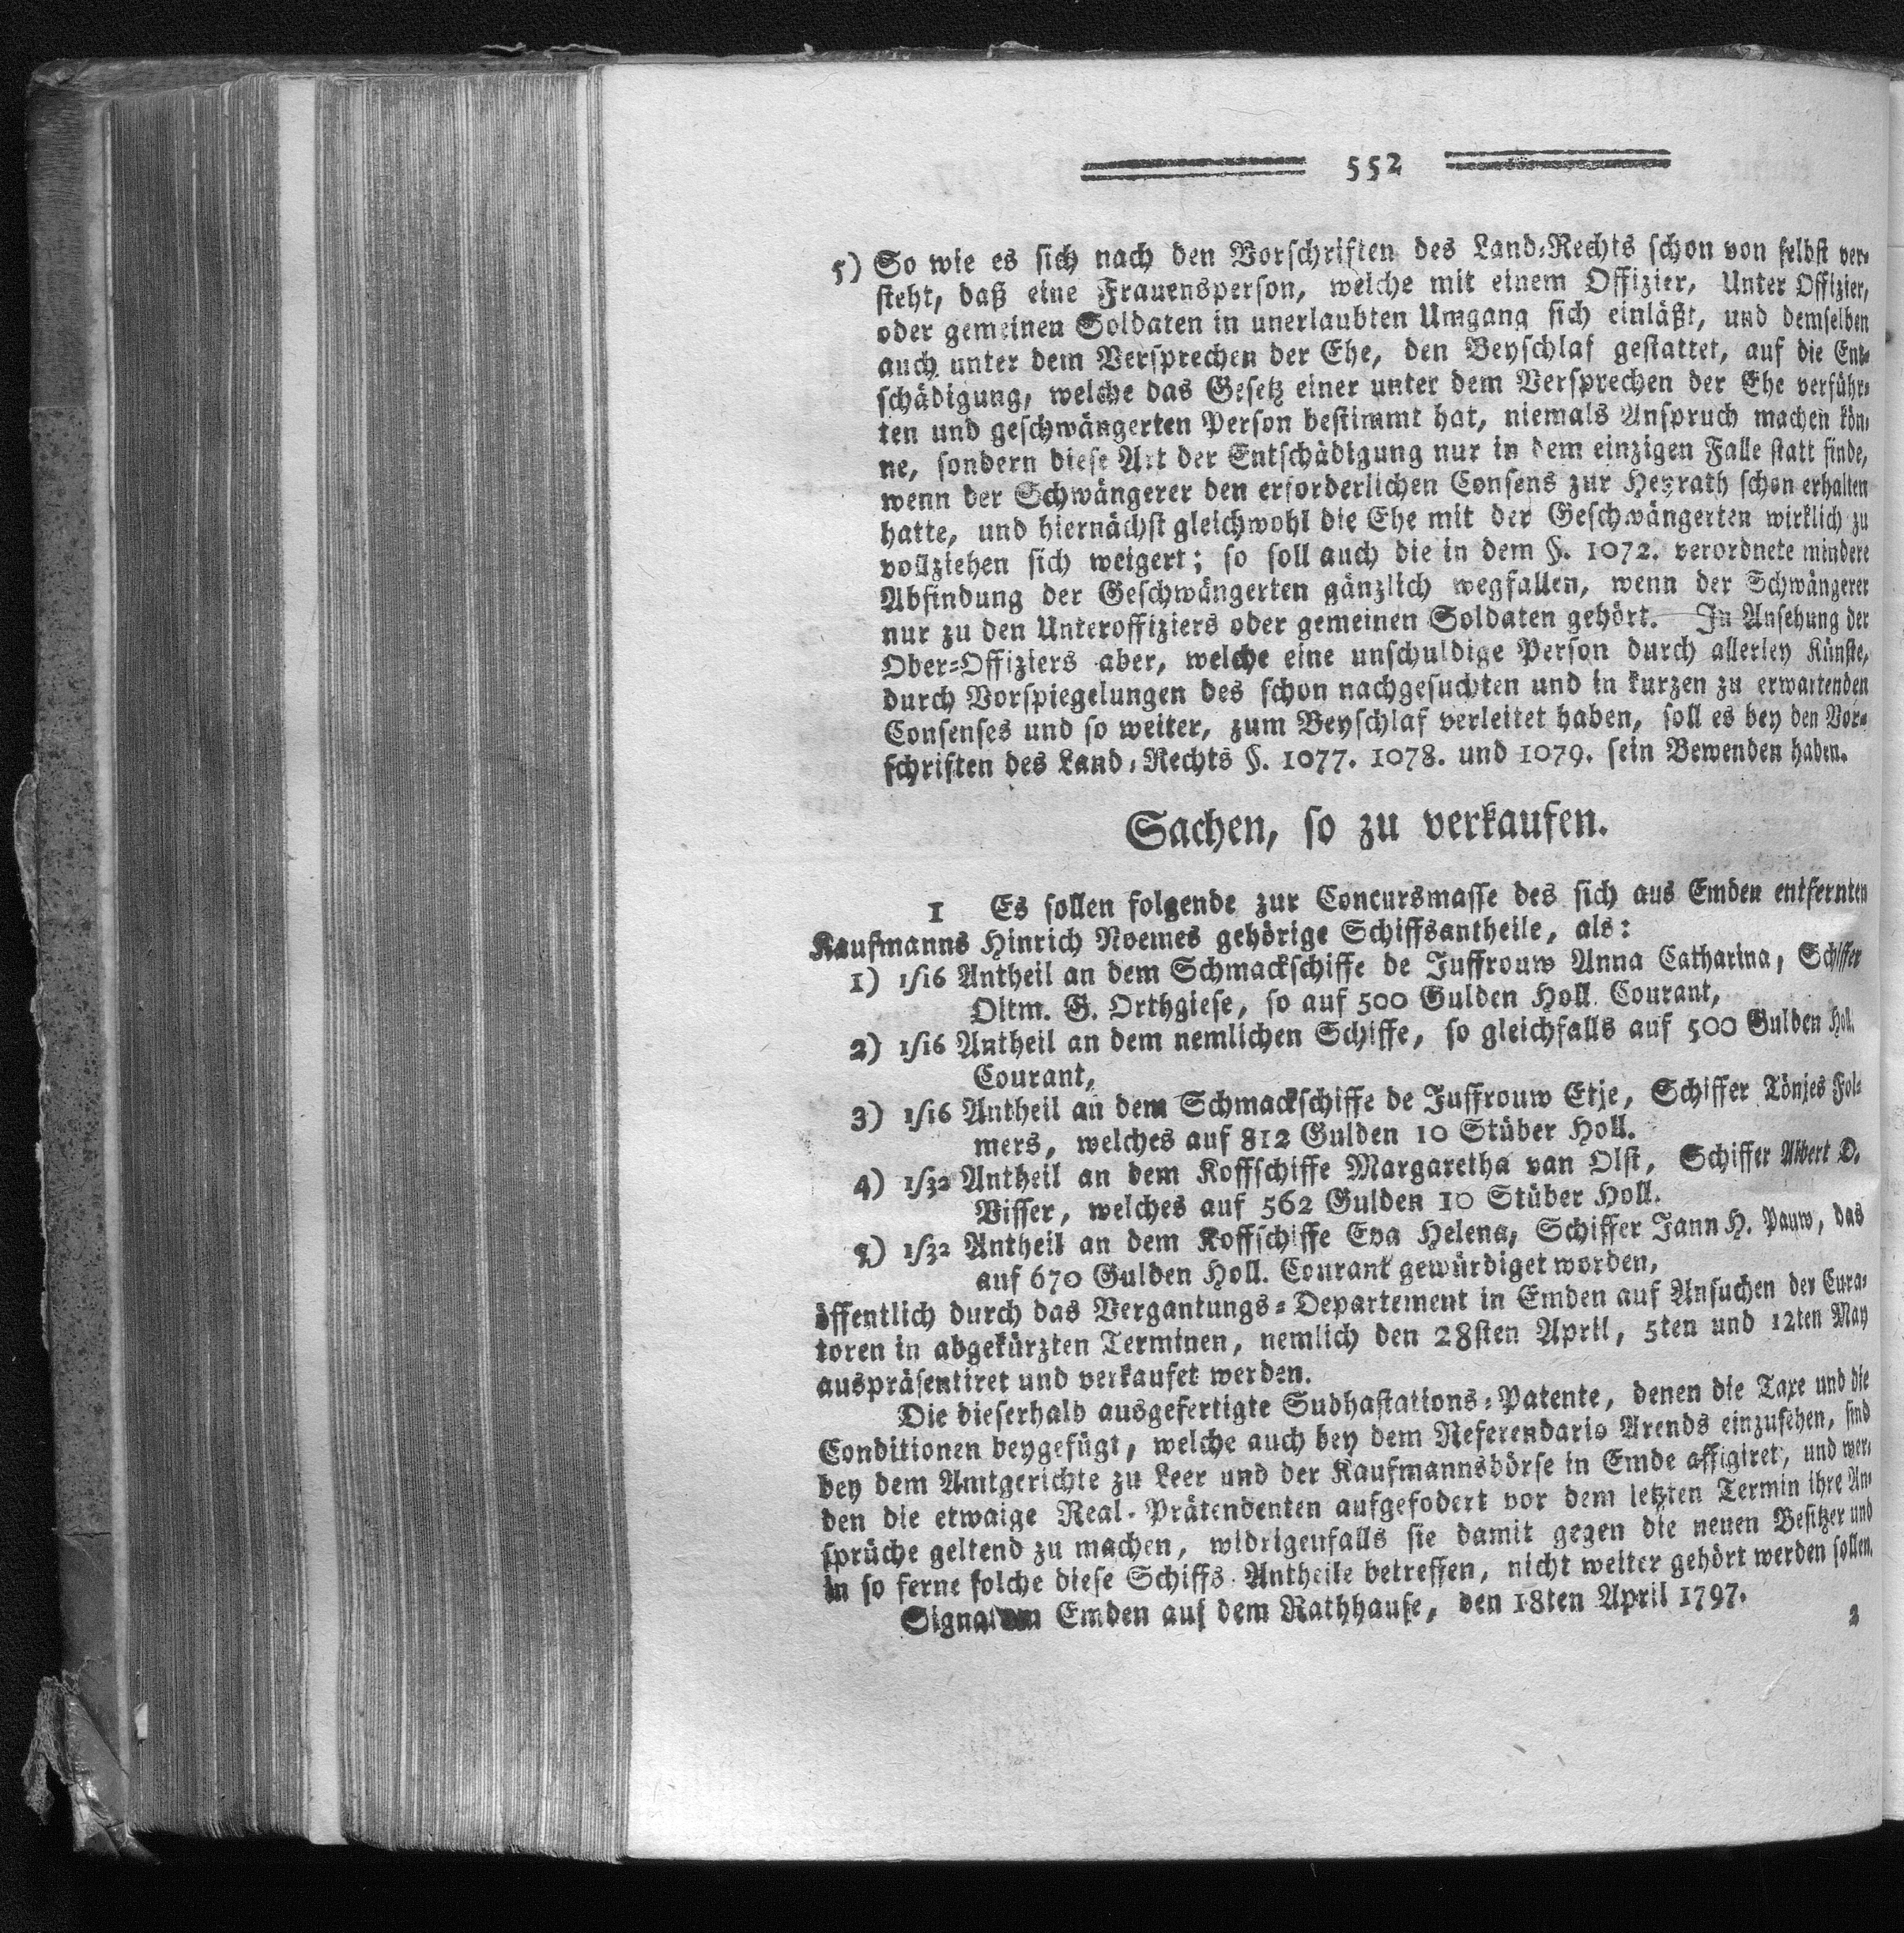 552
5) So wie es sich nach den Vorschriften des Land-Rechts schon von selbst ver-
steht, daß eine Frauensperson, welche mit einem Offizier, Unter Offizier,
oder gemeinen Soldaten in unerlaubten Umgang sich einläßt, und demselben
auch unter dem Versprechen der Ehe, den Beyschlaf gestattet, auf die Ent-
schädigung, welche das Gesetz einer unter dem Versprechen der Ehe verführ-
ten und geschwängerten Person bestimmt hat, niemals Anspruch machen kön-
ne, sondern diese Art der Entschädigung nur in dem einzigen Falle statt finde,
wenn der Schwängerer den erforderlichen Consens zur Heyrath schon erhalten
hatte, und hiernächst gleichwohl die Ehe mit der Geschwängerten wirklich zu
vollziehen sich weigert; so soll auch die in dem §. 1072. verordnete mindere
Abfindung der Geschwängerten gänzlich wegfallen, wenn der Schwängerer
nur zu den Unteroffiziers oder gemeinen Soldaten gehört. In Ansehung der
Ober-Offiziers aber, welche eine unschuldige Person durch allerley Künste,
durch Vorspiegelungen des schon nachgesuchten und in kurzen zu erwartenden
Consenses und so weiter, zum Beyschlaf verleitet haben, soll es bey den Vor-
schriften des Land-Rechts §. 1077. 1078. und 1079. sein Bewenden haben.
Sachen, so zu verkaufen.
1 Es sollen folgende zur Concursmasse des sich aus Emden entfernten
Kaufmanns Hinrich Noemes gehörige Schiffsantheile, als:
1) 1/16 Antheil an dem Schmackschiffe de Juffrouw Anna Catharina, Schiffer
Oltm. G. Orthgiese, so auf 500 Gulden Holl. Courant,
2) 1/16 Antheil an dem nemlichen Schiffe, so gleichfalls auf 500 Gulden Holl.
Courant,
3) 1/16 Antheil an dem Schmackschiffe de Juffrouw Etje, Schiffer Tönjes Fol-
mers, welches auf 812 Gulden 10 Stüber Holl.
4) 1/32 Antheil an dem Koffschiffe Margaretha van Olst, Schiffer Albert D.
Visser, welches auf 562 Gulden 10 Stüber Holl.
5) 1/32 Antheil an dem Koffschiffe Eva Helena, Schiffer Jann H. Pauw, das
auf 670 Gulden Holl. Courant gewürdiget worden,
öffentlich durch das Vergantungs-Departement in Emden auf Ansuchen der Cura-
toren in abgekürzten Terminen, nemlich den 28sten April, 5ten und 12ten May
auspräsentiret und verkaufet werden.
Die dieserhalb ausgefertigte Subhastations-Patente, denen die Taxe und die
Conditionen beygefügt, welche auch bey dem Referendario Arends einzusehen, sind
bey dem Amtgerichte zu Leer und der Kaufmannsbörse in Emde affigiret, und wer-
den die etwaige Real-Prätendenten aufgefodert vor dem letzten Termin ihre An-
sprüche geltend zu machen, widrigenfalls sie damit gegen die neuen Besitzer und
in so ferne solche diese Schiffs Antheile betreffen, nicht weiter gehört werden sollen.
Signatum Emden auf dem Rathhause, den 18ten April 1797.
2